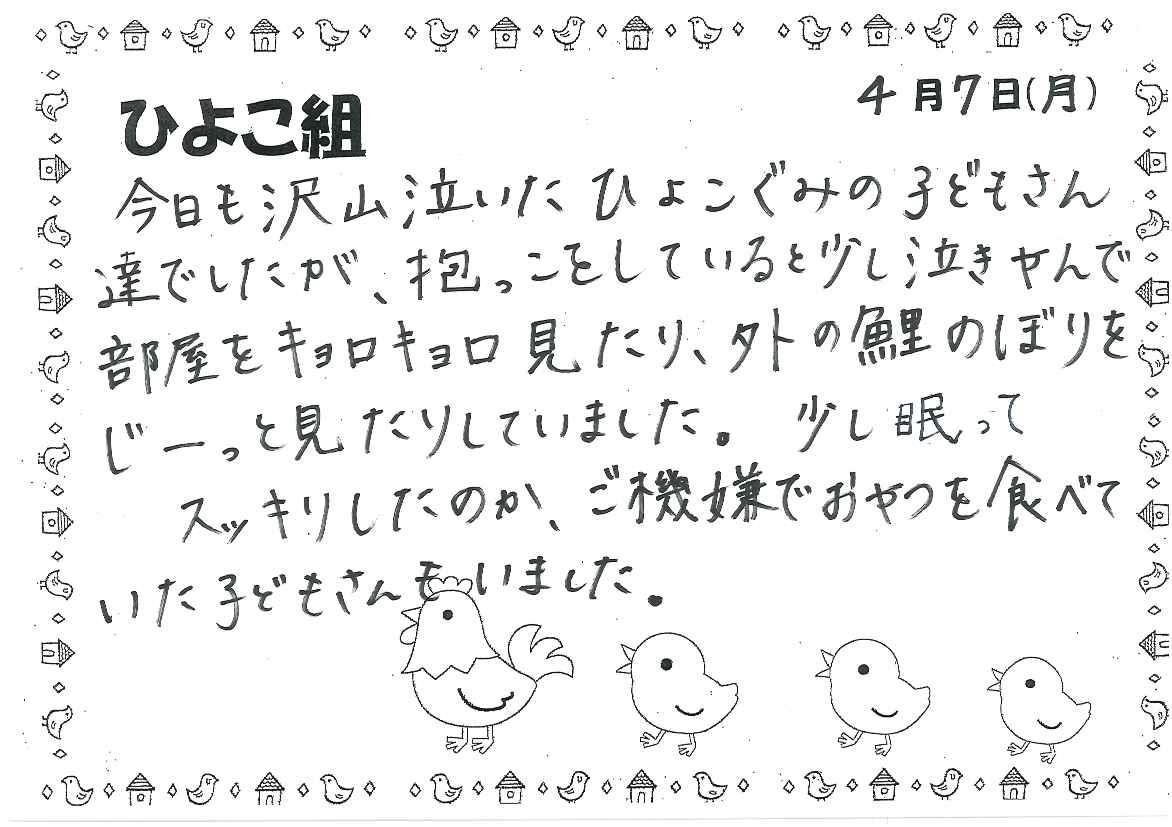 ひよこ組
4月7日(月)
今日も沢山泣いたひよこぐみの子どもさん
達でしたが、抱っこをしていると少し泣きやんで
部屋をキョロキョロ見たり、外の鯉のぼりを
じーっと見たりしていました。少し眠って
スッキリしたのか、ご機嫌でおやつを食べて
いた子どもさんもいました。